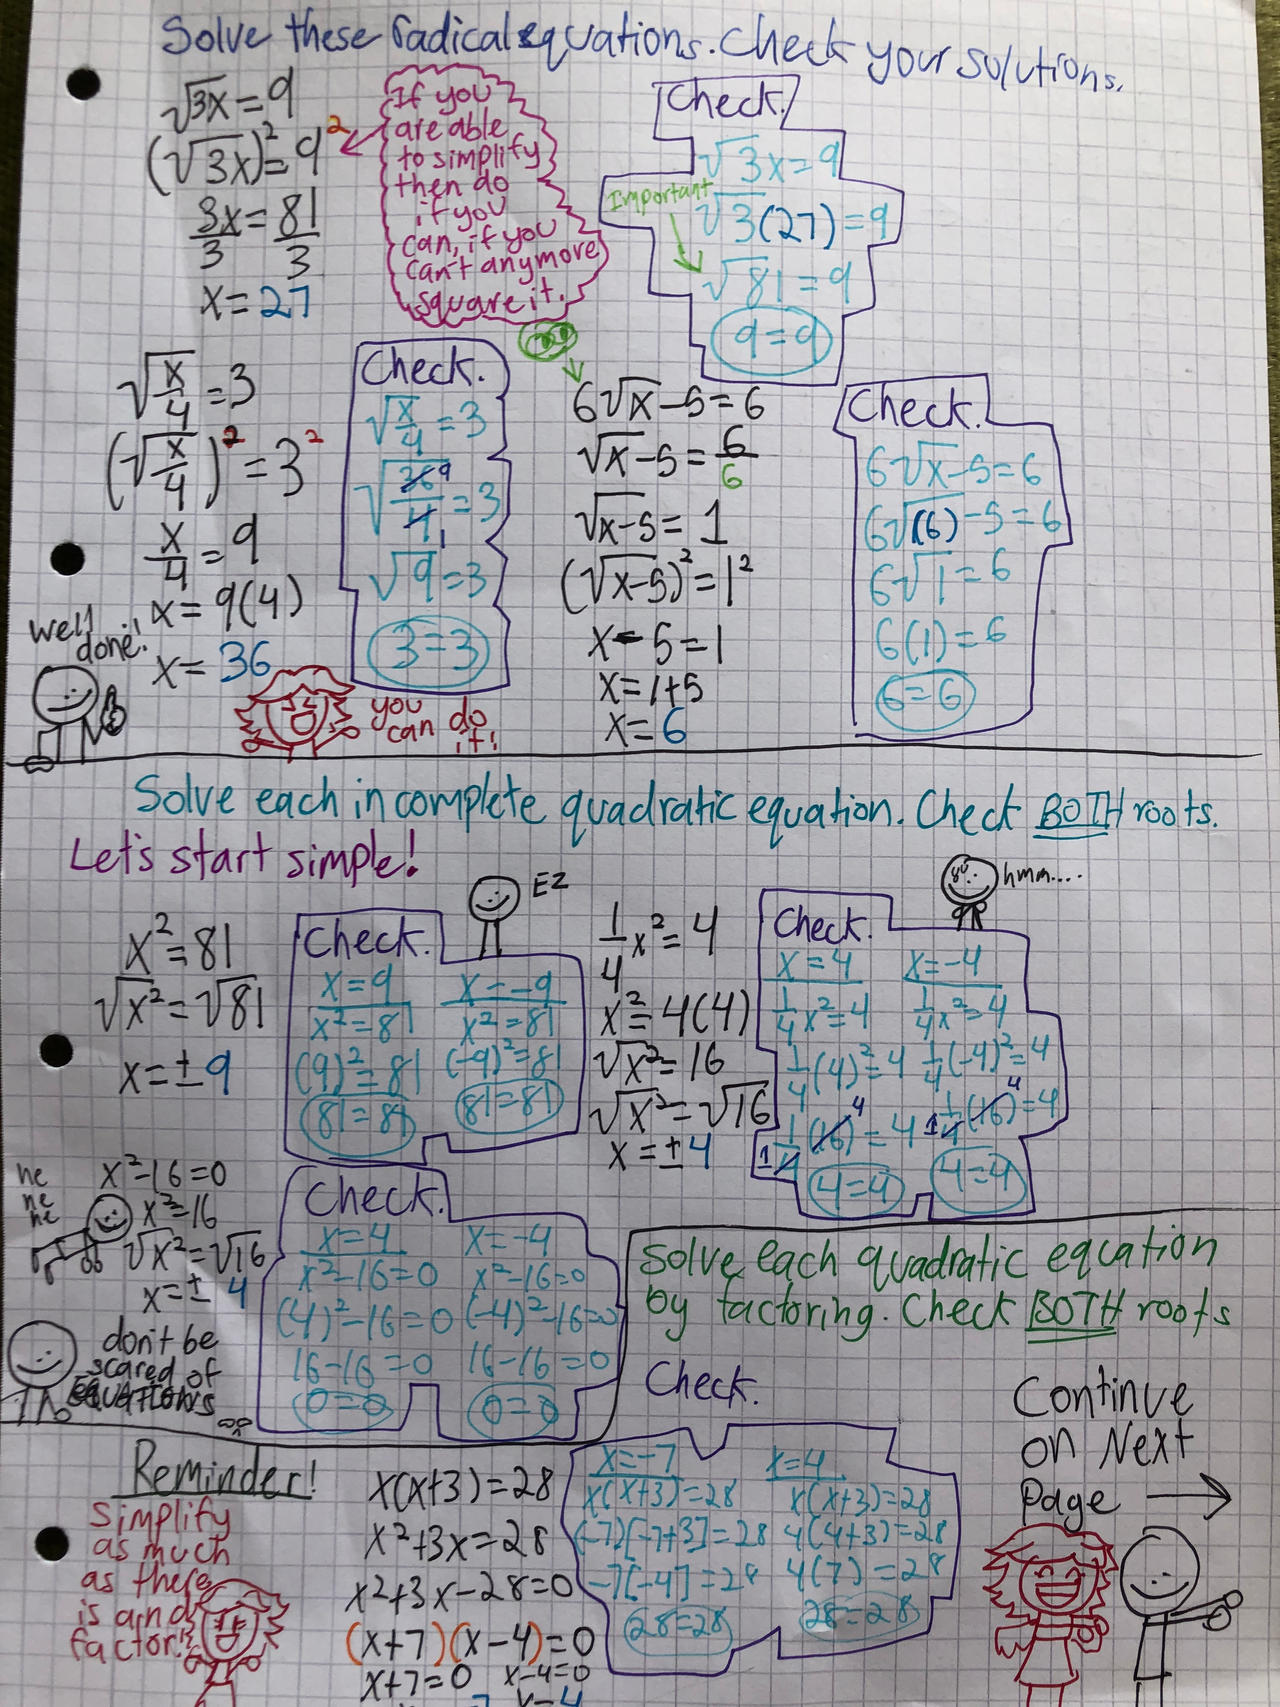 Solve these radical equations. Check your solutions.
√3x = 9
(√3x)² = 9²
3x/3 = 81/3
x = 27
If you
are able
to simplify
then do
if you
can, if you
can't anymore
square it.
Check.
√3x = 9
Important
√3(27) = 9
√81 = 9
9 = 9
√x/4 = 3
(√x/4)² = 3²
x/4 = 9
x = 9(4)
x = 36
Check.
√x/4 = 3
√36/4 = 3
9
1
√9 = 3
3 = 3
6√x-5 = 6
√x-5 = 6/6
√x-5 = 1
(√x-5)² = 1²
x-5 = 1
x = 1+5
x = 6
Check.
6√x-5 = 6
6√(6)-5 = 6
6√1 = 6
6(1) = 6
6 = 6
Well
done!
you
can do
it!
Solve each incomplete quadratic equation. Check BOTH roots.
Let's start simple!
x² = 81
√x² = √81
x = ±9
EZ
Check.
x = 9 x = -9
x² = 81 x² = 81
(9)² = 81 (-9)² = 81
81 = 81 81 = 81
1/4x² = 4
x² = 4(4)
√x² = 16
√x² = √16
x = ±4
hmm....
Check.
x = 4 x = -4
1/4x² = 4 1/4x² = 4
1/4(4)² = 4 1/4(-4)² = 4
4 4
1 1/4(16) = 4 1 1/4(16) = 4
4 = 4 4 = 4
he
he
he
x²-16 = 0
x² = 16
√x² = √16
x = ± 4
don't be
scared of
EQUATIONS
Check.
x = 4 x = -4
x²-16 = 0 x²-16 = 0
(4)²-16 = 0 (-4)²-16 = 0
16-16 = 0 16-16 = 0
0 = 0 0 = 0
Solve each quadratic equation
by factoring. Check BOTH roots
Reminder!
Simplify
as much
as there
is and
factor!
x(x+3) = 28
x²+3x = 28
x²+3x-28 = 0
(x+7)(x-4) = 0
x+7 = 0 x-4 = 0
Check.
x = -7 x = 4
x(x+3) = 28 x(x+3) = 28
(-7)[-7+3] = 28 4(4+3) = 28
-7[-4] = 28 4(7) = 28
28 = 28 28 = 28
Continue
on Next
Page →